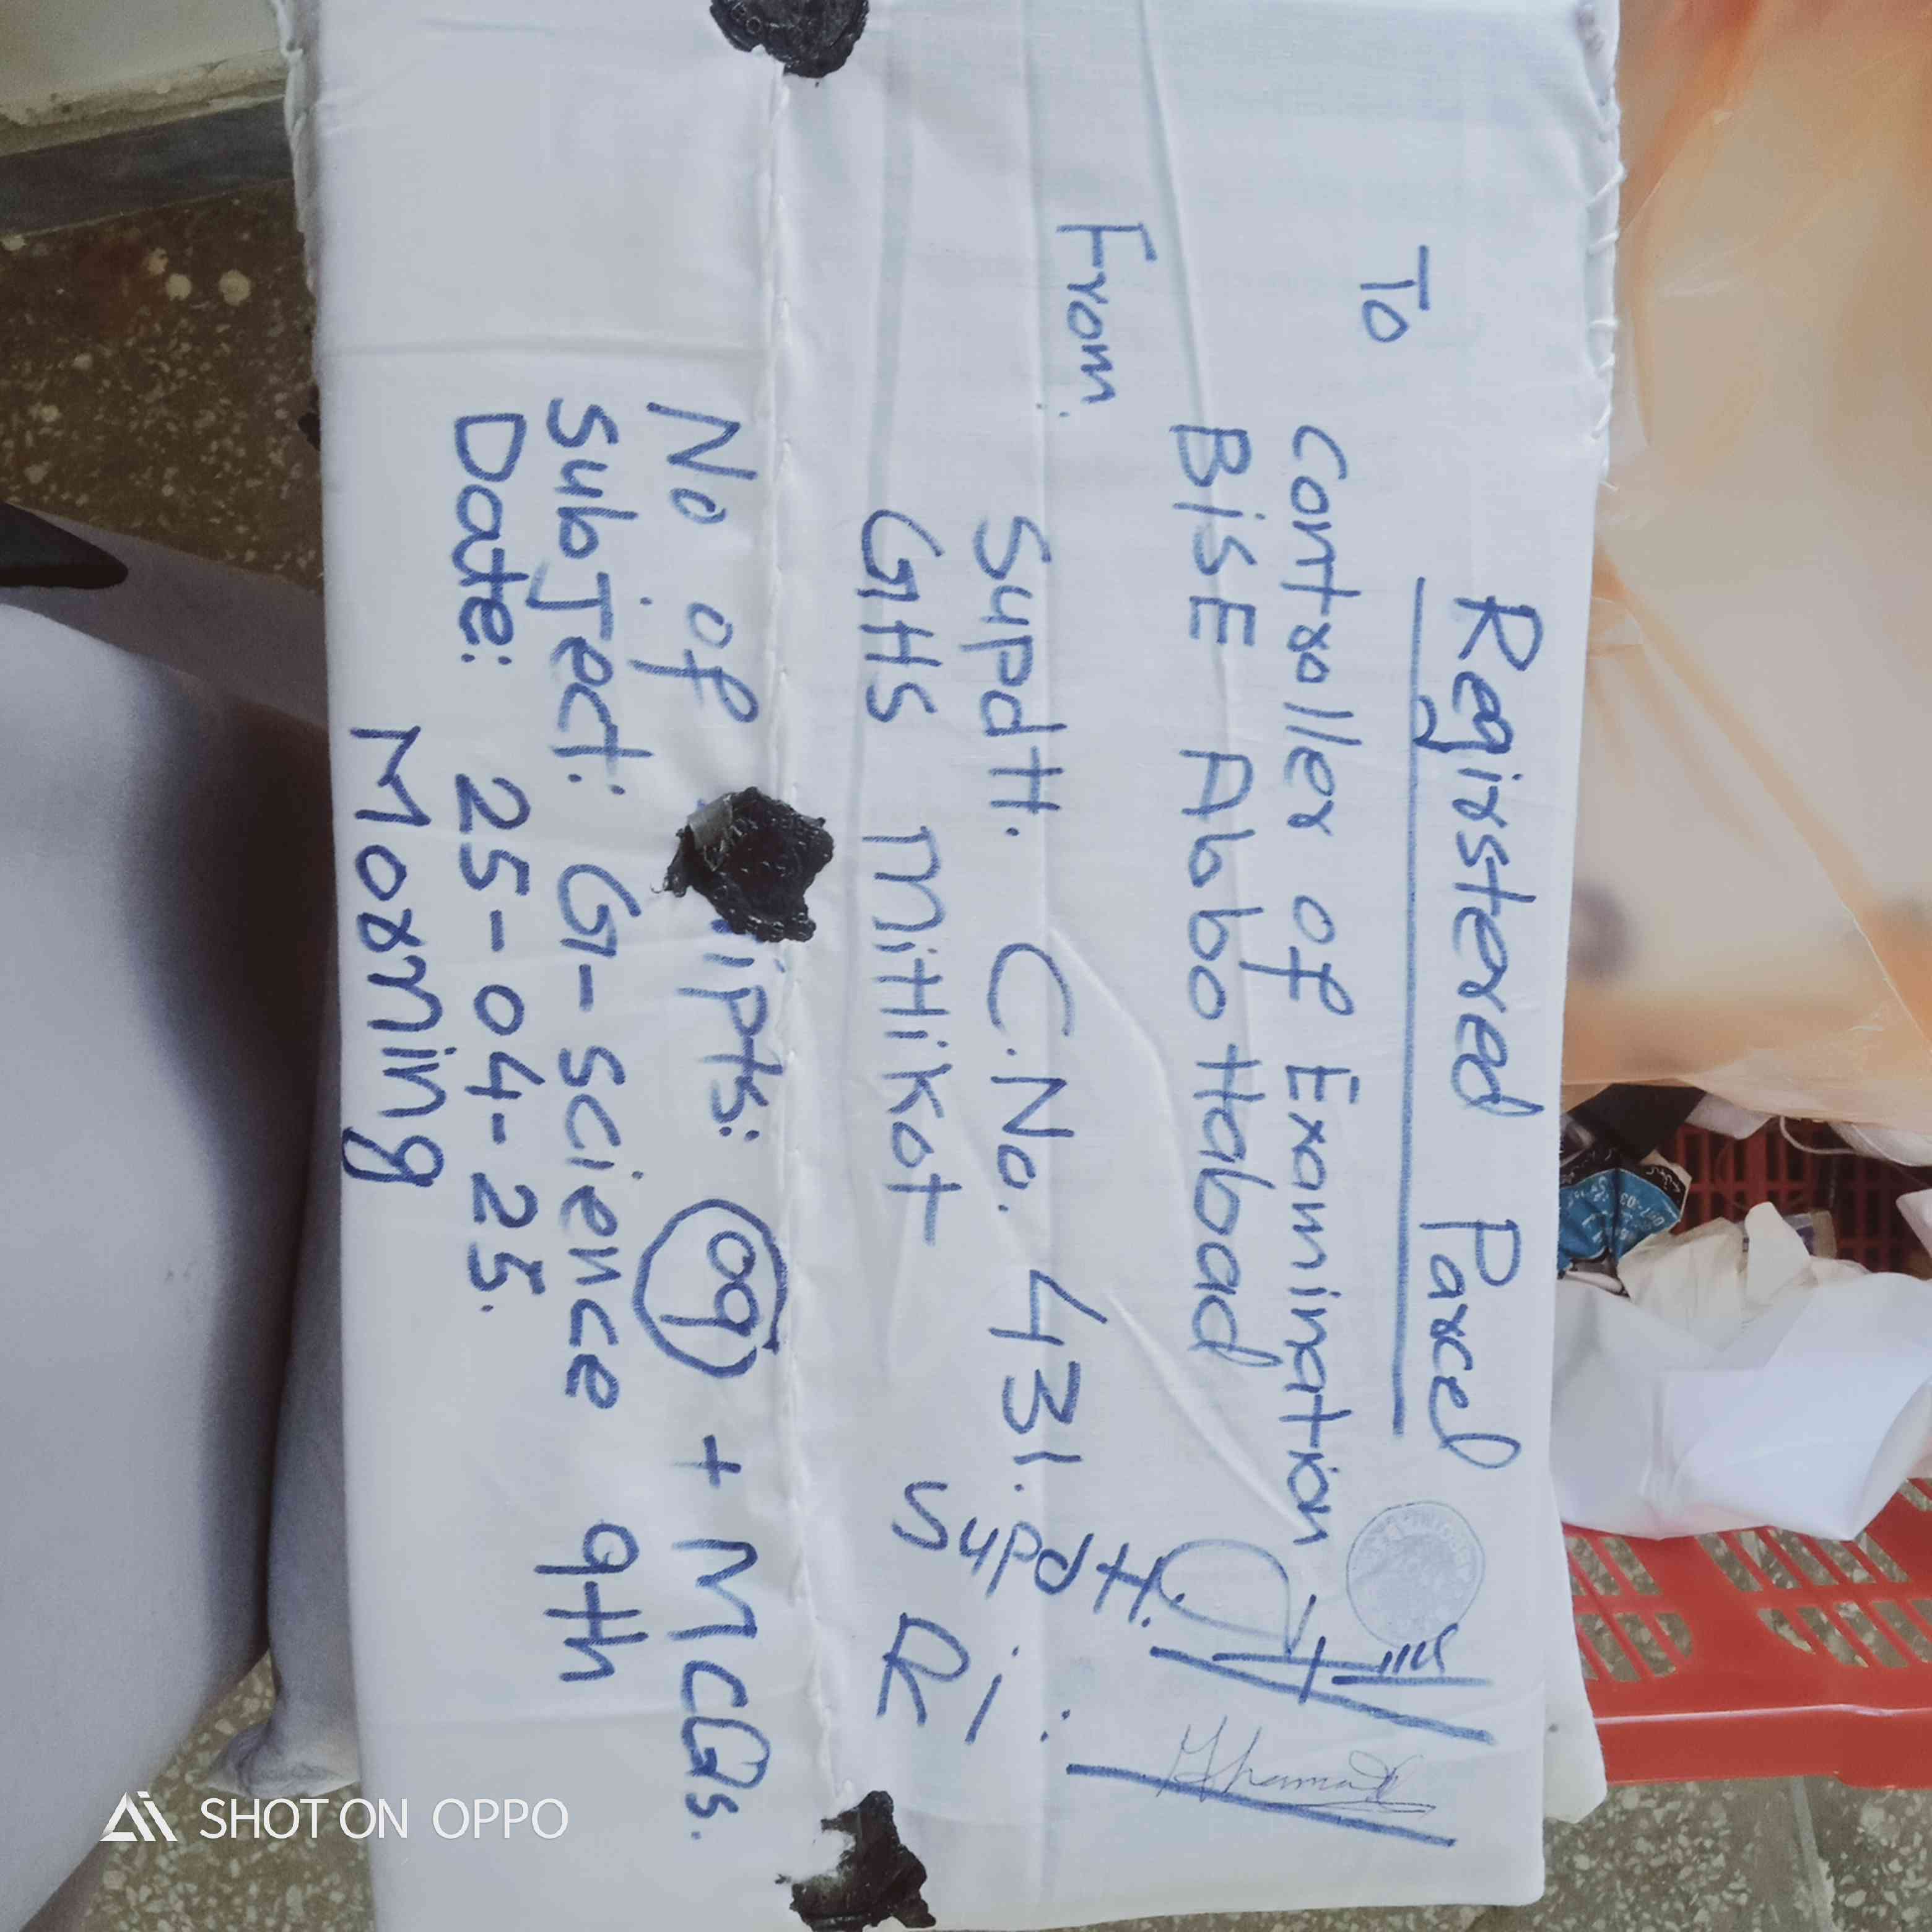 Registered Parcel
To
Controller of Examination
BISE Abbottabad
From:
Supdtt. C.No. 431.
GHS Mittikot
Supdtt.
No of ipts: 09 + MCQs.
SubJect: G-science 9th
Date: 25-04-25.
Morning
SHOT ON OPPO